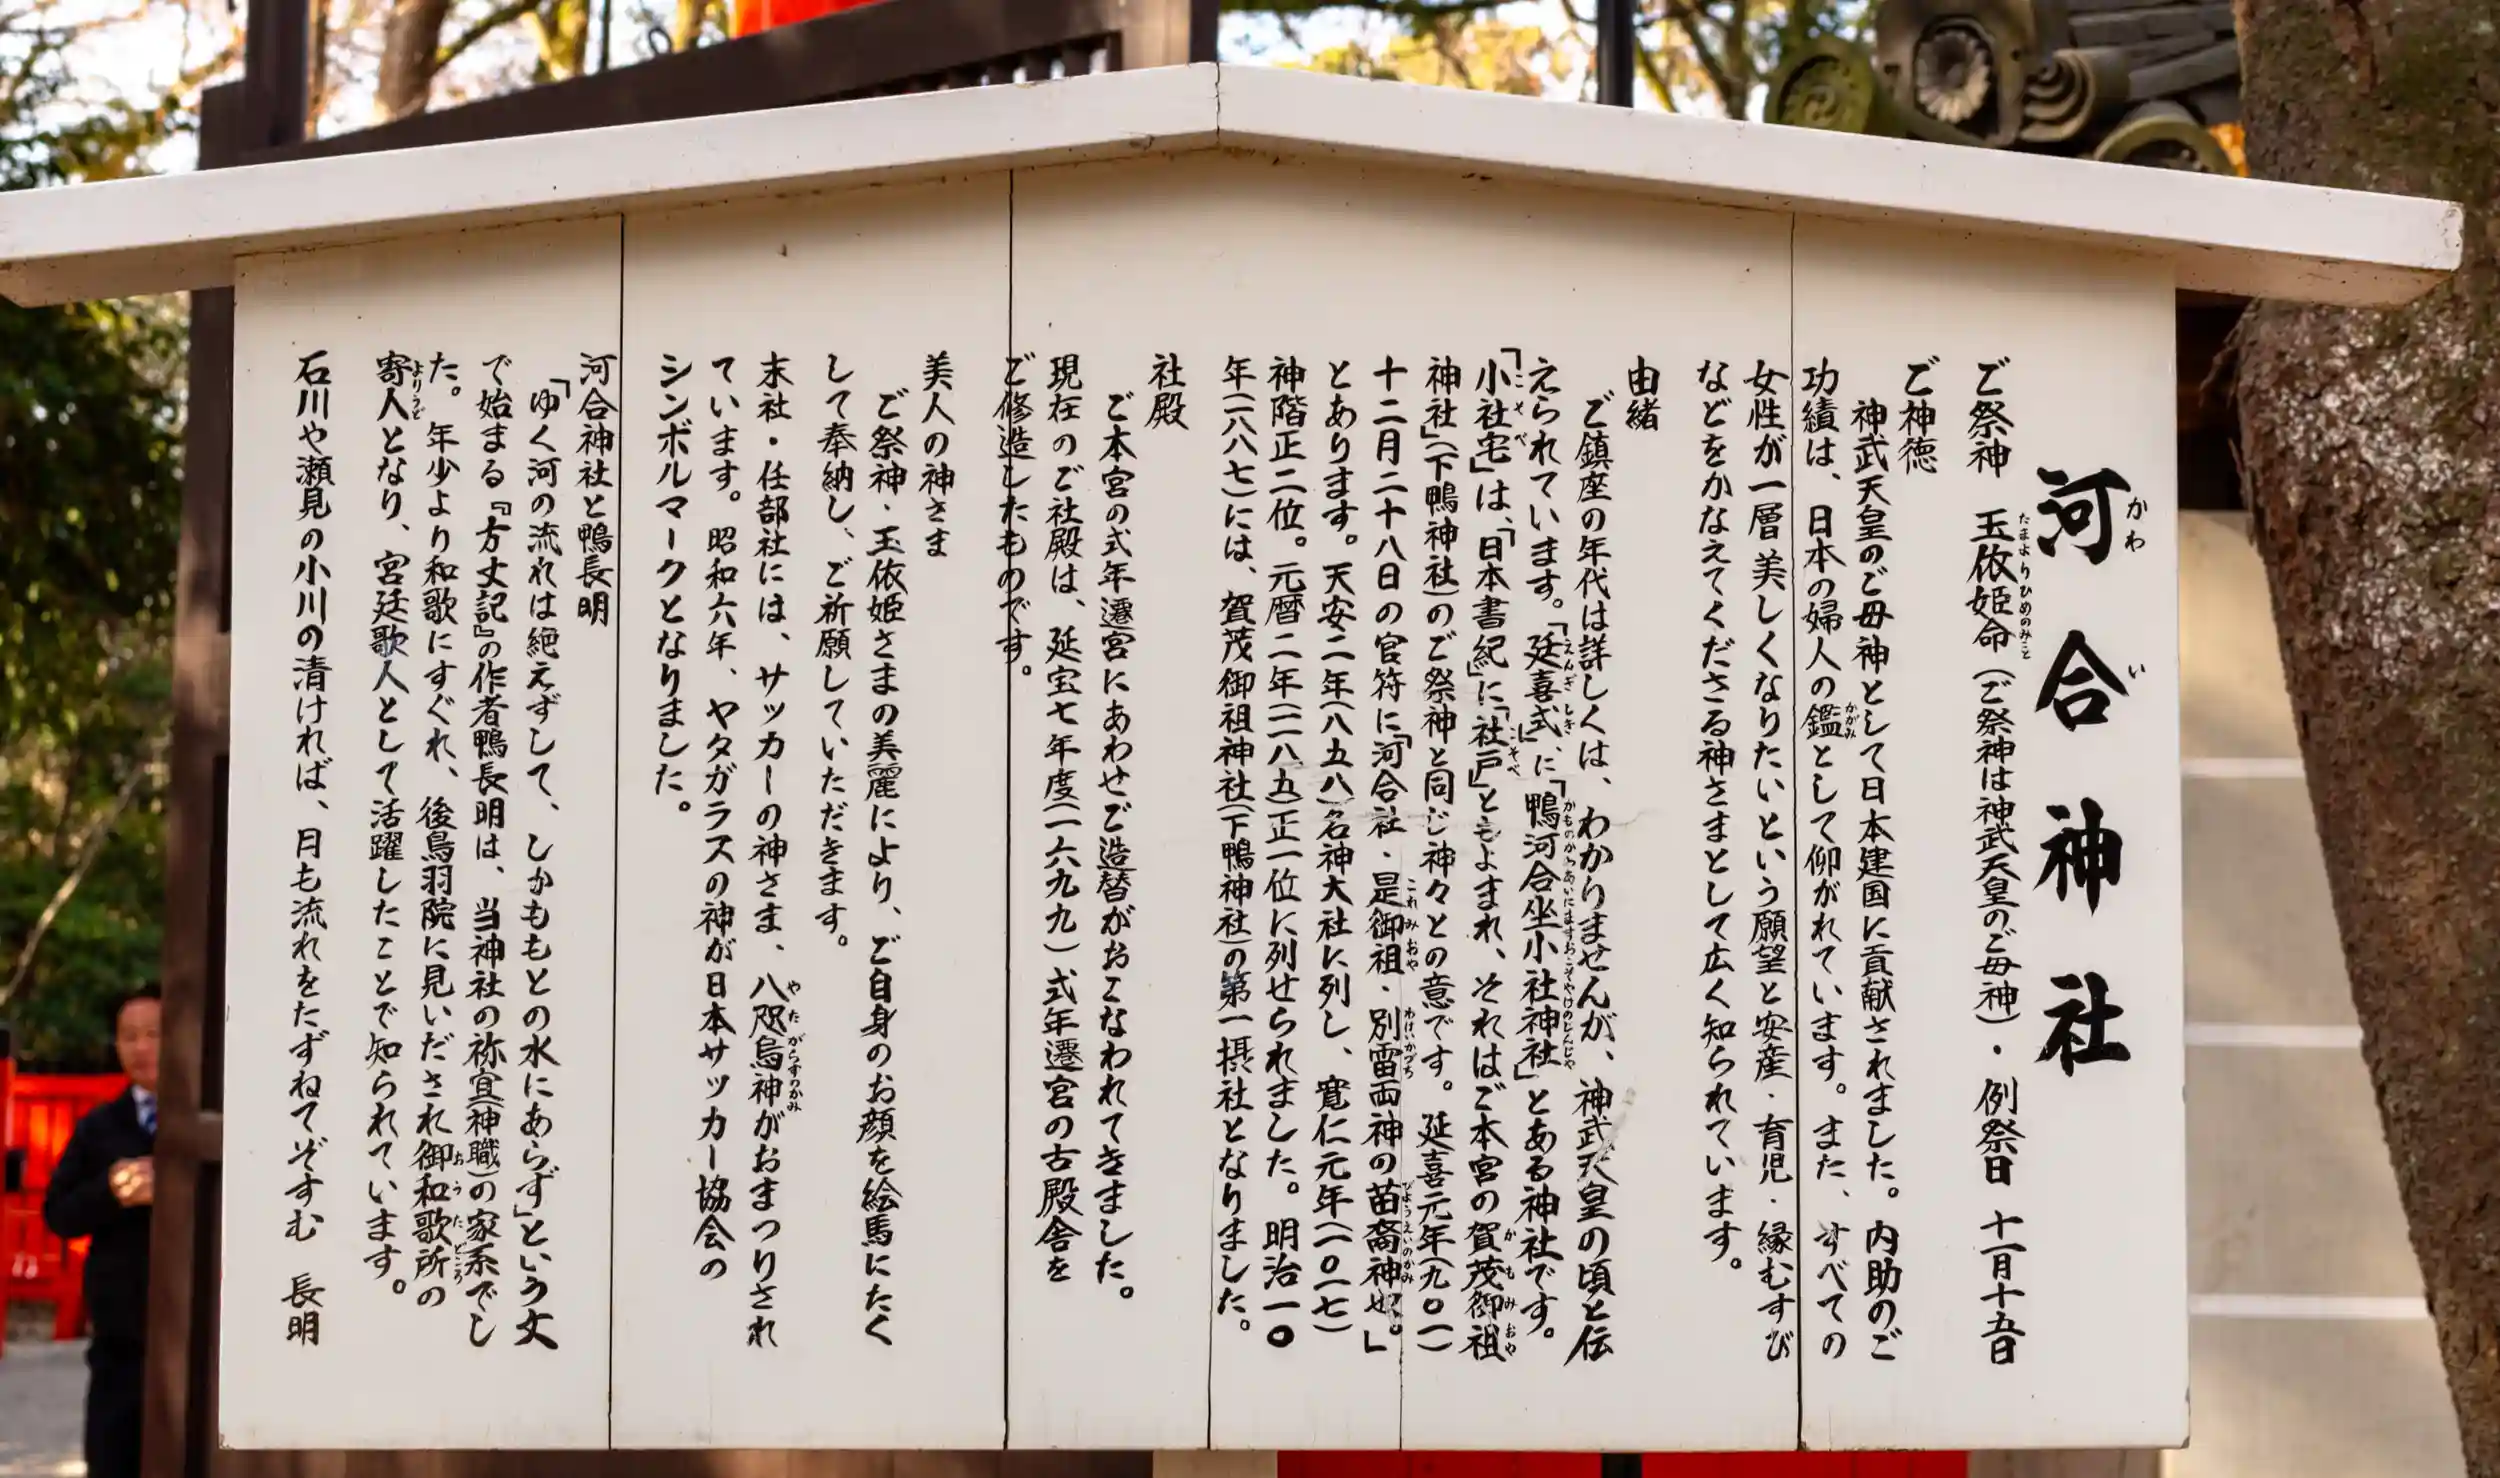 河合神社
ご祭神 玉依姫命（ご祭神は神武天皇のご母神）・例祭日 十一月十五日
ご神徳
神武天皇のご母神として日本建国に貢献されました。内助のご
功績は、日本の婦人の鑑として仰がれています。また、すべての
女性が一層美しくなりたいという願望と安産・育児・縁むすび
などをかなえてくださる神さまとして広く知られています。
由緒
ご鎮座の年代は詳しくは、わかりませんが、神武天皇の頃と伝
えられています。「延喜式」に「鴨河合坐小社神社」とある神社です。
「小社宅」は、「日本書紀」に「社戸」ともよまれ、それはご本宮の賀茂御祖
神社」（下鴨神社）のご祭神と同じ神々との意です。延喜元年（九〇一）
十二月二十八日の官符に「河合社・是御祖・別雷両神の苗裔神也。」
とあります。天安二年（八五八）名神大社に列し、寛仁元年（一〇一七）
神階正二位。元暦二年（一一八五）正一位に列せられました。明治一〇
年（一八七七）には、賀茂御祖神社（下鴨神社）の第一摂社となりました。
社殿
ご本宮の式年遷宮にあわせご造替がおこなわれてきました。
現在のご社殿は、延宝七年度（一六七九）式年遷宮の古殿舎を
ご修造したものです。
美人の神さま
ご祭神・玉依姫さまの美麗により、ご自身のお顔を絵馬にたく
して奉納し、ご祈願していただきます。
末社・任部社には、サッカーの神さま、八咫烏神がおまつりされ
ています。昭和六年、ヤタガラスの神が日本サッカー協会の
シンボルマークとなりました。
河合神社と鴨長明
「ゆく河の流れは絶えずして、しかももとの水にあらず」という文
で始まる『方丈記』の作者鴨長明は、当神社の祢宜（神職）の家系でし
た。年少より和歌にすぐれ、後鳥羽院に見いだされ御和歌所の
寄人となり、宮廷歌人として活躍したことで知られています。
石川や瀬見の小川の清ければ、月も流れをたずねてぞすむ 長明